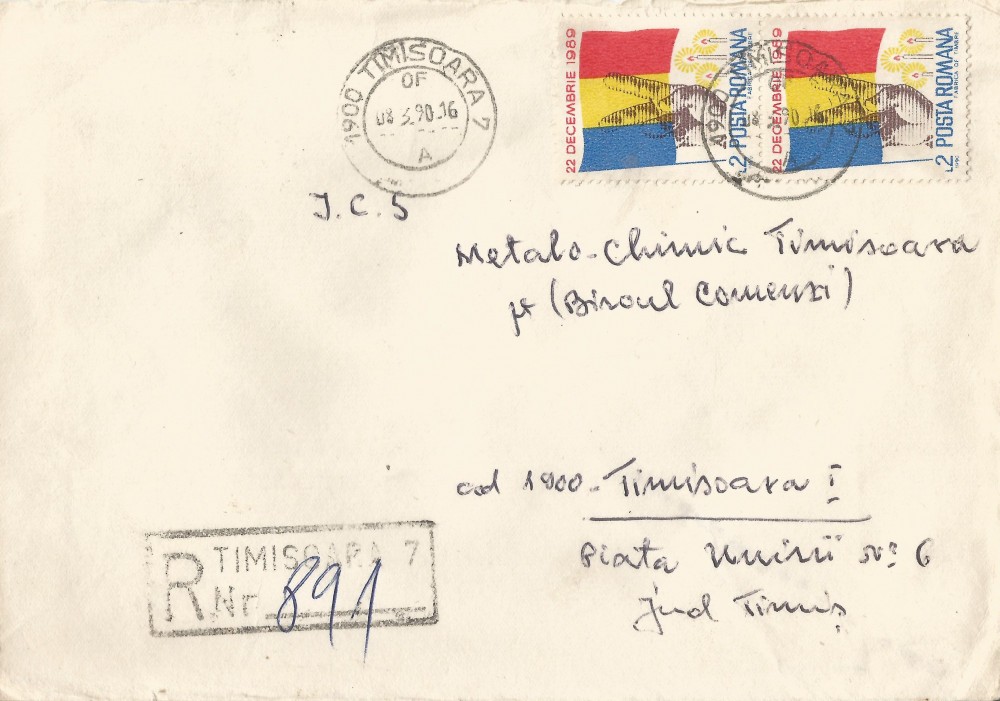 1900 TIMISOARA 7
OF
08.3.90.16
A
22 DECEMBRIE 1989
L2 POSTA ROMANA
FABRICA DE TIMBRE
22 DECEMBRIE 1989
L2 POSTA ROMANA
FABRICA DE TIMBRE
1990
J.C.5
Metalo-Chimic Timisoara
pt (Biroul Comenzi)
cod 1900-Timisoara I
Piata Unirii Nr 6
Jud Timiș
R TIMISOARA 7
Nr. 891